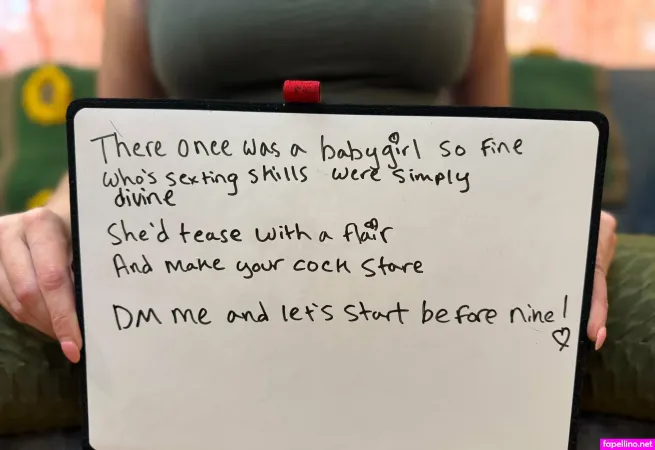 There once was a babygirl so fine
who's sexting skills were simply
divine
She'd tease with a flair
And make your cock stare
DM me and let's start before nine!
fapellino.net